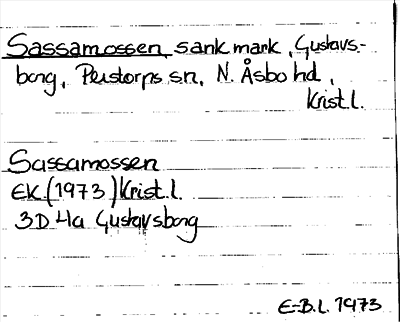 Sassamossen, sank mark, Gustavs-
borg, Perstorps sn, N. Åsbo hd,
Krist. l.
Sassamossen
EK (1973) Krist. l.
3D 4a Gustavsborg
E-B. L. 1973